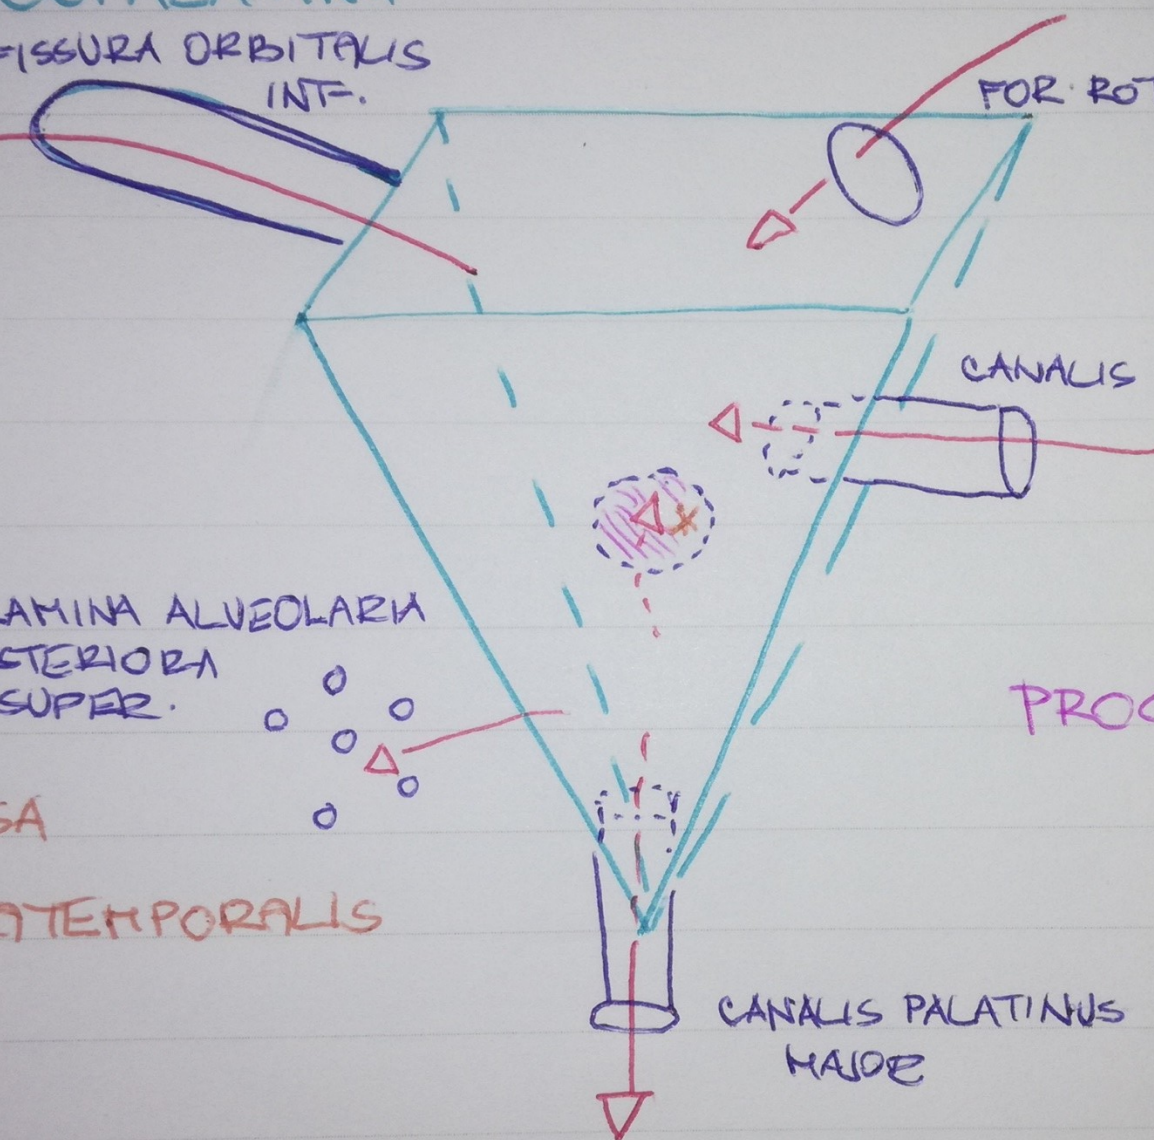 FISSURA ORBITALIS
INF.
FOR. ROT
CANALIS
LAMINA ALVEOLARIA
STERIORA
SUPER.
PROC
SA
ATEMPORALIS
CANALIS PALATINUS
MAJOR